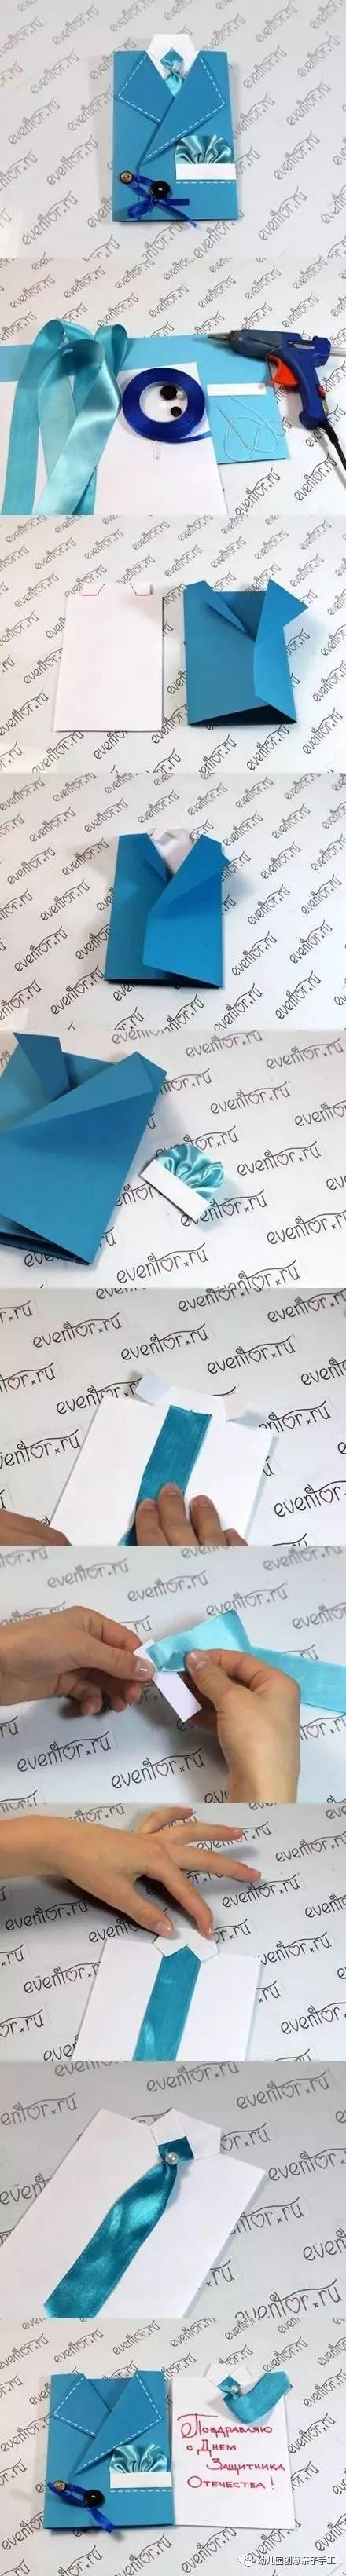 eventor.ru
Поздравляю
с Днем
Защитника
Отечества!
幼儿园创意亲子手工